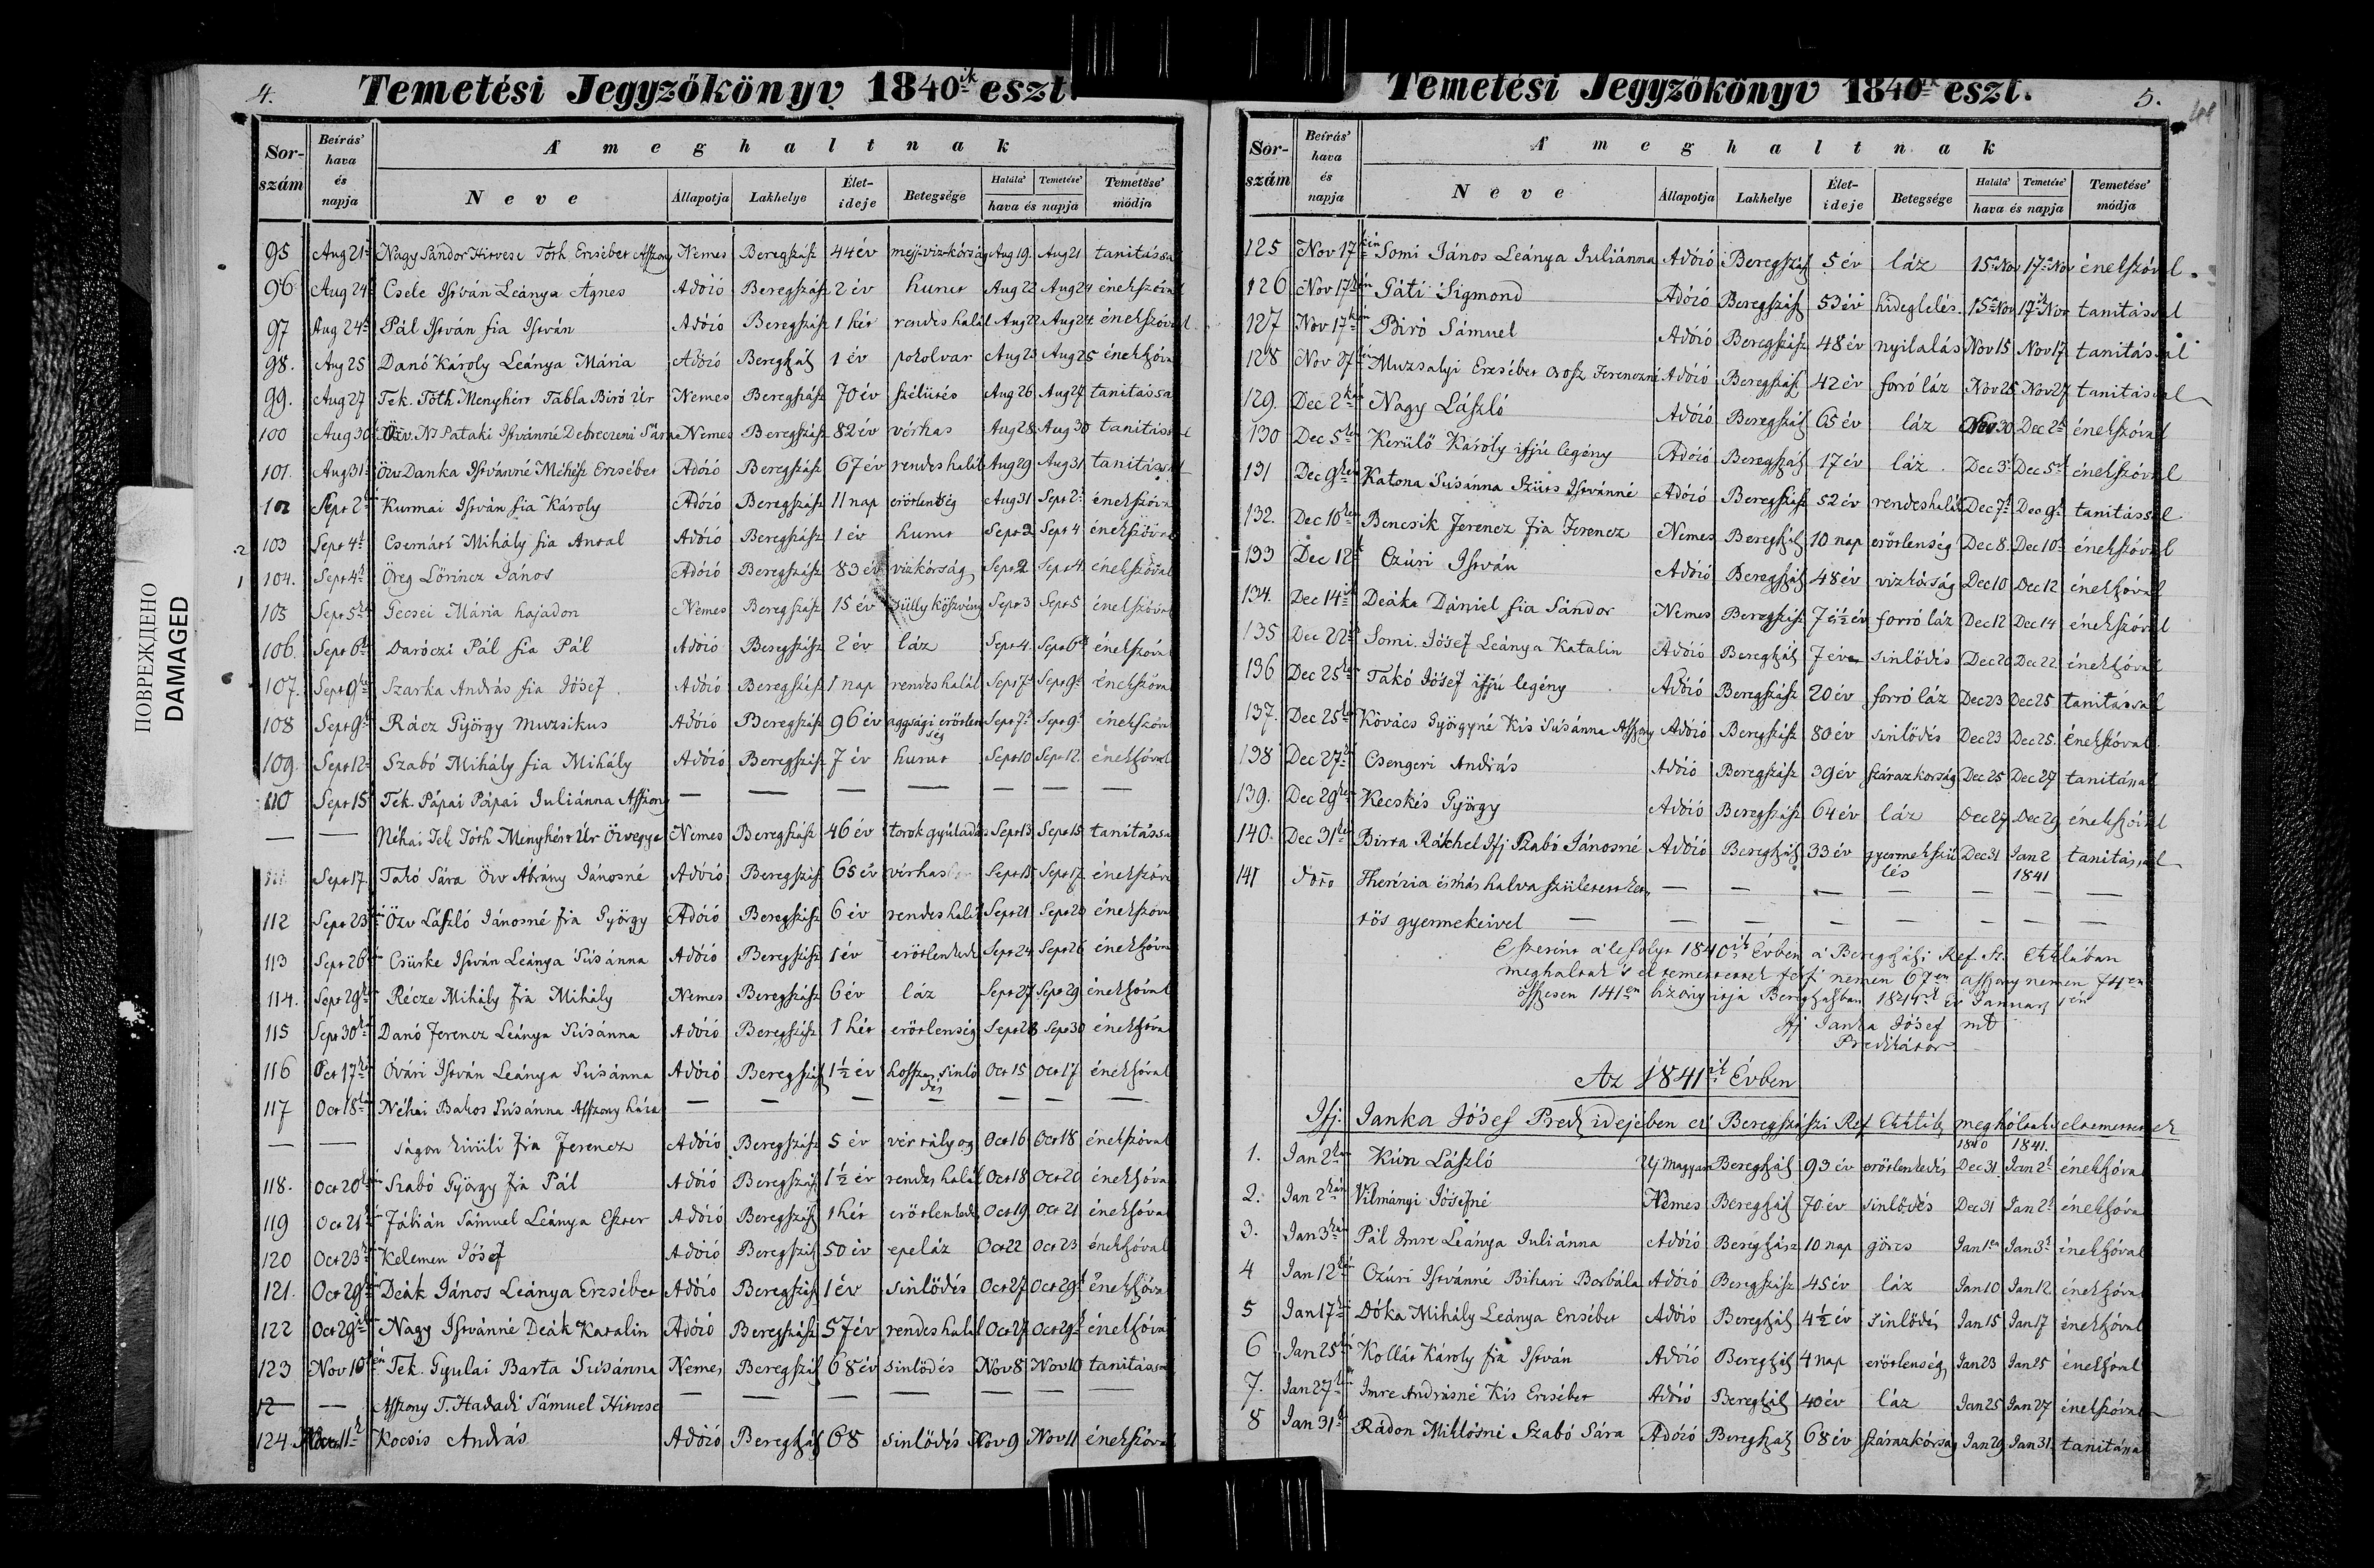 4.
Temetési Jegyzőkönyv 1840ik eszt.
Sor-szám Beírás' hava és napja A' meghaltnak
Neve Állapotja Lakhelye Élet-ideje Betegsége Halála' Temetése' hava és napja Temetése' módja
95 Aug 21 Nagy Sándor Hitvese Tóth Ersébet Asszony Nemes Beregszász 44 év mejj-vizkórság Aug 19. Aug 21 tanitással
96 Aug 24 Csete István Leánya Ágnes Adózó Beregszász 2 év hurut Aug 22 Aug 24 énekszóval
97 Aug 24 Pál István fia István Adózó Beregszász 1 hét rendes halál Aug 22 Aug 24 énekszóval
98. Aug 25 Danó Károly Leánya Mária Adózó Beregszász 1 év pokolvar Aug 23 Aug 25 énekszóval
99. Aug 27 Tek. Tóth Menyhért Tábla Biró Úr Nemes Beregszász 70 év szélütés Aug 26 Aug 27 tanitással
100 Aug 30 Özv. Ns Pataki Istvánné Debreczeni Sára Nemes Beregszász 82 év vérhas Aug 28 Aug 30 tanitással
101. Aug 31 Özv Danka Istvánné Méhész Erzsébet Adózó Beregszász 67 év rendes halál Aug 29 Aug 31 tanitással
102 Sept 2 Kurmai István fia Károly Adózó Beregszász 11 nap erőtlenség Aug 31 Sept 2 énekszóval
2 103 Sept 4 Csernáti Mihály fia Antal Adózó Beregszász 1 év hurut Sept 2 Sept 4 énekszóval
1 104. Sept 4 Öreg Lőrincz János Adózó Beregszász 83 év vizkórság Sept 2 Sept 4 énekszóval
105 Sept 5 Pécsei Mária hajadon Nemes Beregszász 15 év sülly köszvény Sept 3 Sept 5 énekszóval
106. Sept 6 Daróczi Pál fia Pál Adózó Beregszász 2 év láz Sept 4. Sept 6 énekszóval
107. Sept 9 Szarka András fia Jósef Adózó Beregszász 1 nap rendes halál Sept 7 Sept 9 énekszóval
108 Sept 9 Rácz György muzsikus Adózó Beregszász 96 év aggsági erőtlenség Sept 7 Sept 9 énekszóval
109. Sept 12 Szabó Mihály fia Mihály Adózó Beregszász 7 év hurut Sept 10 Sept 12 énekszóval
110 Sept 15 Tek. Pápai Pápai Juliánna Asszony — — — — — — —
— — Néhai Tek Tóth Menyhért Úr Özvegye Nemes Beregszász 46 év torokgyúladás Sept 13 Sept 15 tanitással
111 Sept 17 Takó Sára Özv Ábrány Jánosné Adózó Beregszász 65 év vérhas Sept 15 Sept 17 énekszóval
112 Sept 23 Özv László Jánosné fia György Adózó Beregszász 6 év rendes halál Sept 21 Sept 23 énekszóval
113 Sept 26 Csürke István Leánya Susánna Adózó Beregszász 1 év erőtlenkedés Sept 24 Sept 26 énekszóval
114. Sept 29 Récze Mihály fia Mihály Nemes Beregszász 6 év láz Sept 27 Sept 29 énekszóval
115 Sept 30 Danó Ferencz Leánya Susánna Adózó Beregszász 1 hét erőtlenség Sept 28 Sept 30 énekszóval
116 Oct 17 Óvári István Leánya Susánna Adózó Beregszász 1½ év hosszas sinlődés Oct 15 Oct 17 énekszóval
117 Oct 18 Néhai Bakos Susánna Asszony háza — — — — — — —
— — ságon kivüli fia Ferencz Adózó Beregszász 5 év vér Oct 16 Oct 18 énekszóval
118. Oct 20 Szabó György fia Pál Adózó Beregszász 1½ év rendes halál Oct 18 Oct 20 énekszóval
119 Oct 21 Fábián Sámuel Leánya Eszter Adózó Beregszász 1 hét erőtlenkedés Oct 19 Oct 21 énekszóval
120 Oct 23 Kelemen Jósef Adózó Beregszász 50 év epeláz Oct 22 Oct 23 énekszóval
121. Oct 29 Deák János Leánya Erzsébet Adózó Beregszász 1 év sinlődés Oct 27 Oct 29 énekszóval
122 Oct 29 Nagy Istvánné Deák Katalin Adózó Beregszász 57 év rendes halál Oct 27 Oct 29 énekszóval
123 Nov 10 Tek. Gyulai Barta Susánna Nemes Beregszász 68 év sinlődés Nov 8 Nov 10 tanitással
12 — Asszony T. Hadadi Sámuel Hitvese — — — — — — —
124. Nov 11 Kocsis András Adózó Beregszász 68 sinlődés Nov 9 Nov 11 énekszóval
Temetési Jegyzőkönyv 1840ik eszt.
5.
Sor-szám Beírás' hava és napja A' meghaltnak
Neve Állapotja Lakhelye Élet-ideje Betegsége Halála' Temetése' hava és napja Temetése' módja
125 Nov 17kén Somi János Leánya Juliánna Adózó Beregszász 5 év láz 15 Nov 17 Nov énekszóval
126 Nov 17 Páti Sigmond Adózó Beregszász 53 év hideglelés 15 Nov 17 Nov tanitással
127 Nov 17 Biró Sámuel Adózó Beregszász 48 év nyilalás Nov 15 Nov 17 tanitással
128 Nov 27 Muzsalyi Erzsébet Orosz Ferenczné Adózó Beregszász 42 év forró láz Nov 25 Nov 27 tanitással
129. Dec 2 Nagy László Adózó Beregszász 65 év láz Nov 30 Dec 2 énekszóval
130 Dec 5 Kerülő Károly ifjú legény Adózó Beregszász 17 év láz Dec 3 Dec 5 énekszóval
131 Dec 9 Katona Susánna Szűts Istvánné Adózó Beregszász 52 év rendes halál Dec 7 Dec 9 tanitással
132. Dec 10 Bencsik Ferencz fia Ferencz Nemes Beregszász 10 nap erőtlenség Dec 8 Dec 10 énekszóval
133 Dec 12 Czúri István Adózó Beregszász 48 év vizkórság Dec 10 Dec 12 énekszóval
134. Dec 14 Deák Dániel fia Sándor Nemes Beregszász 7 ½ év forró láz Dec 12 Dec 14 énekszóval
135 Dec 22 Somi Jósef Leánya Katalin Adózó Beregszász 7 éves sinlődés Dec 20 Dec 22 énekszóval
136 Dec 25 Takó Jósef ifjú legény Adózó Beregszász 20 év forró láz Dec 23 Dec 25 tanitással
137. Dec 25 Kovács Györgyné Kis Susánna Asszony Adózó Beregszász 80 év sinlődés Dec 23 Dec 25. énekszóval
138 Dec 27 Csengeri András Adózó Beregszász 39 év szárazkorság Dec 25 Dec 27 tanitással
139. Dec 29 Kecskés György Adózó Beregszász 64 év láz Dec 27 Dec 29 énekszóval
140. Dec 31 Birta Rákhel Ifj Szabó Jánosné Adózó Beregszász 33 év gyermekszülés Dec 31 Jan 2 1841 tanitással
141 dotto Therézia és más halva született ket — — — — — — —
tös gyermekeivel — — — — — — — —
E szerint a' lefolyt 1840ik Évben a' Beregszászi Ref. Sz. Ekklában
meghaltak 's eltemettettek férfi nemen 67en asszony nemen 74en
összesen 141en bizonyitja Beregszászban 1841ik Év Januar 1én
Ifj Janka Jósef mk
Predikátor
Az 1841ik Évben
Ifj. Janka Jósef Pred. idejében a' Beregszászi Ref Ekklában megholtak 's eltemettettek
1. Jan 2 Kún László Beregszász 93 év erőtlenkedés 1840 Dec 31 1841. Jan 2 énekszóval
2. Jan 2 Vilmányi Jósefné Nemes Beregszász 70 év sinlődés Dec 31 Jan 2 énekszóval
3. Jan 3 Pál Imre Leánya Juliánna Adózó Beregszász 10 nap görcs Jan 1 Jan 3 énekszóval
4 Jan 12 Czúri Istvánné Bihari Borbála Adózó Beregszász 45 év láz Jan 10 Jan 12 énekszóval
5 Jan 17 Dóka Mihály Leánya Ersébet Adózó Beregszász 4½ év sinlődés Jan 15 Jan 17 énekszóval
6 Jan 25 Kollát Károly fia István Adózó Beregszász 4 nap erőtlenség Jan 23 Jan 25 énekszóval
7. Jan 27 Imre Andrásné Kis Erzsébet Adózó Beregszász 40 év láz Jan 25 Jan 27 énekszóval
8 Jan 31 Rádon Miklósné Szabó Sára Adózó Beregszász 68 év szárazkórság Jan 29 Jan 31 tanitással
ПОВРЕЖДЕНО
DAMAGED